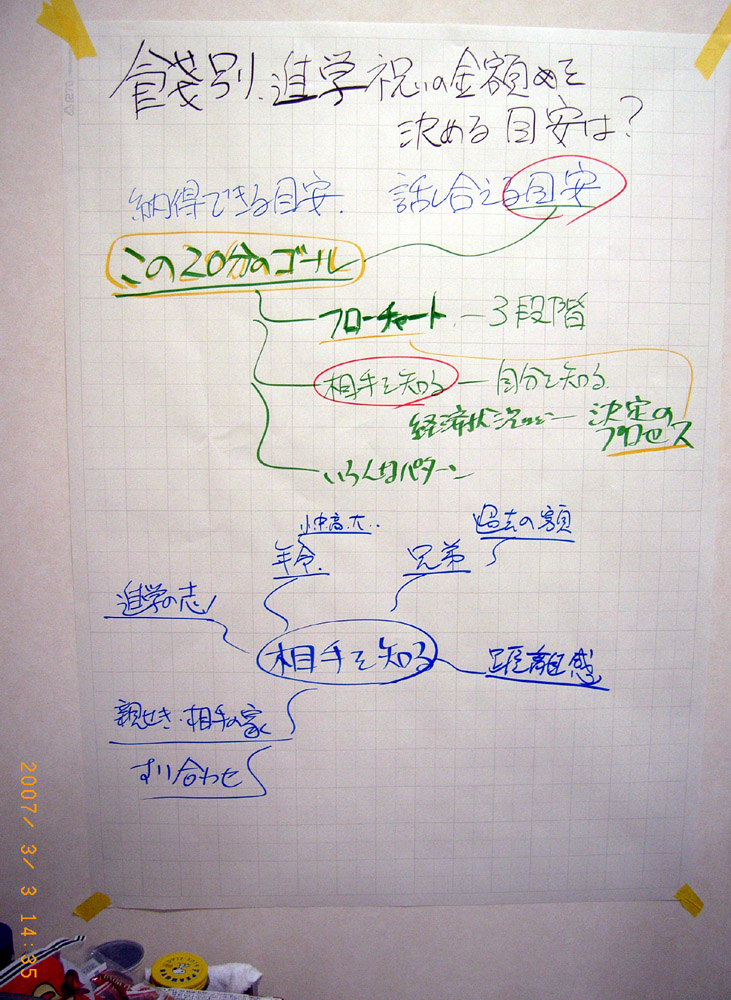 餞別、進学祝いの金額めを
決める目安は?
納得できる目安. 話し合える目安
この20分のゴール
フローチャート — 3段階
相手を知る — 自分を知る
経済状況など — 決定の
プロセス
いろんなパターン
小中高大..
過去の額
年令.
兄弟
進学の志
相手を知る
距離感
親せき・相手の家
すり合わせ
2007/ 3/ 3 14:35